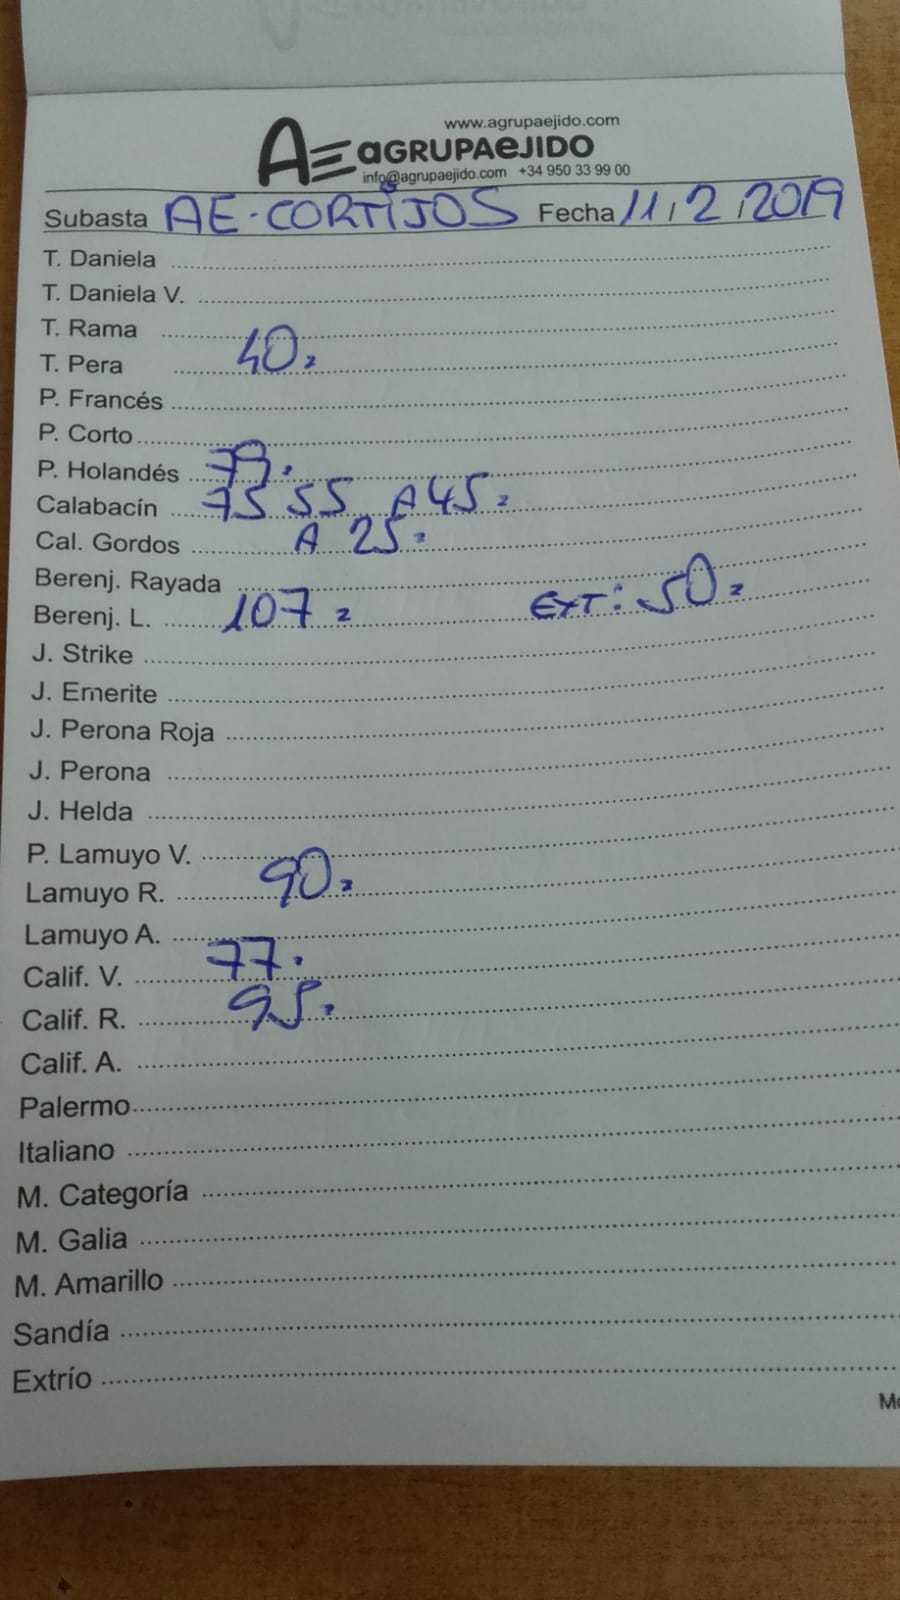 www.agrupaejido.com
AE aGRUPAeJIDO
info@agrupaejido.com +34 950 33 99 00
Subasta AE-CORTIJOS Fecha 11/2/2019
T. Daniela
T. Daniela V.
T. Rama
T. Pera 40
P. Francés
P. Corto
P. Holandés 79
Calabacín 75 55 A 45
Cal. Gordos A 25
Berenj. Rayada
Berenj. L. 107 EXT: 50
J. Strike
J. Emerite
J. Perona Roja
J. Perona
J. Helda
P. Lamuyo V.
Lamuyo R. 90
Lamuyo A.
Calif. V. 77
Calif. R. 95
Calif. A.
Palermo
Italiano
M. Categoría
M. Galia
M. Amarillo
Sandía
Extrío